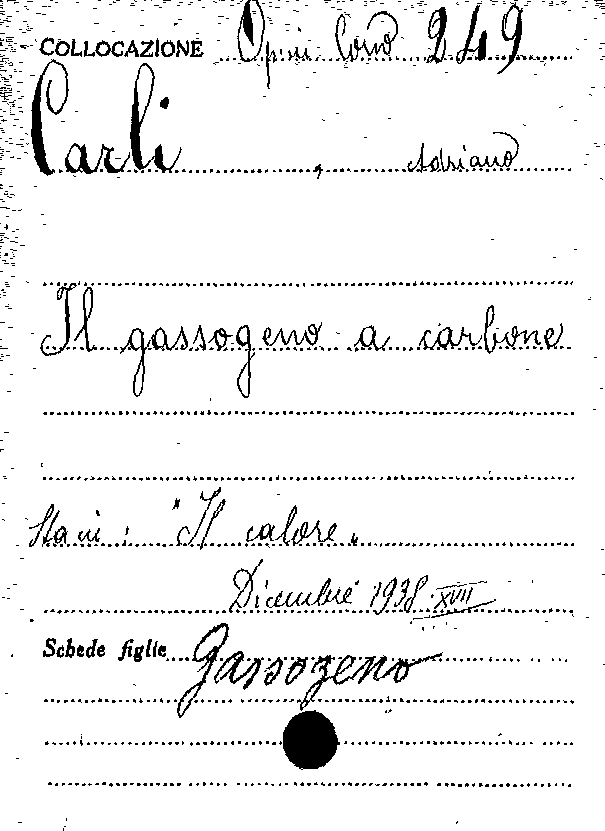 COLLOCAZIONE 249
Carli , Adriano
Il gassogeno a carbone
"Il calore"
Dicembre 1938 XVII
Schede figlie Gassogeno